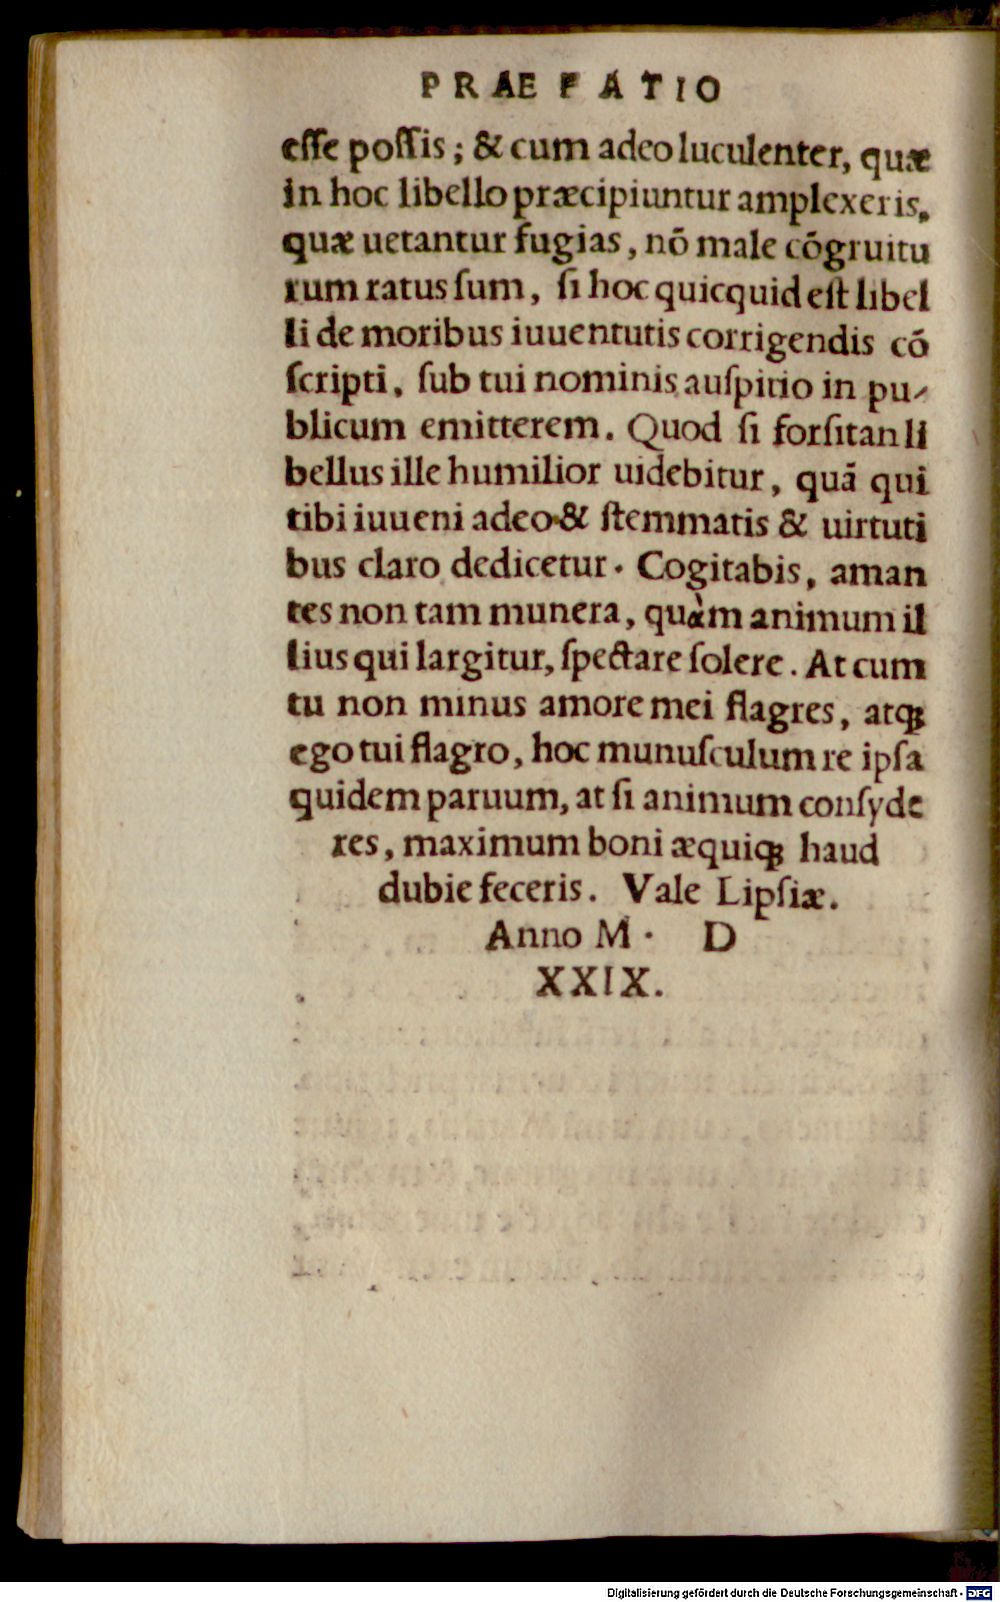 PRAEFATIO
esse possis; & cum adeo luculenter, quæ
in hoc libello præcipiuntur amplexeris,
quæ uetantur fugias, nō male cōgruitu
rum ratus sum, si hoc quicquid est libel
li de moribus iuuentutis corrigendis cō
scripti, sub tui nominis auspitio in pu-
blicum emitterem. Quod si forsitan li
bellus ille humilior uidebitur, quā qui
tibi iuueni adeo & stemmatis & uirtuti
bus claro dedicetur. Cogitabis, aman
tes non tam munera, quàm animum il
lius qui largitur, spectare solere. At cum
tu non minus amore mei flagres, atq;
ego tui flagro, hoc munusculum re ipsa
quidem paruum, at si animum consyde
res, maximum boni æquiq; haud
dubie feceris. Vale Lipsiæ.
Anno M. D
XXIX.
Digitalisierung gefördert durch die Deutsche Forschungsgemeinschaft - DFG